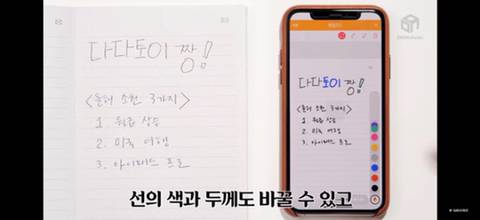 다다토이 짱!
<올해 소원 3가지>
1. 월급 상승
2. 미국 여행
3. 아이패드 프로
다다토이 짱!
<올해 소원 3가지>
1. 월급 상승
2. 미국 여행
3. 아이패드 프로
선의 색과 두께도 바꿀 수 있고